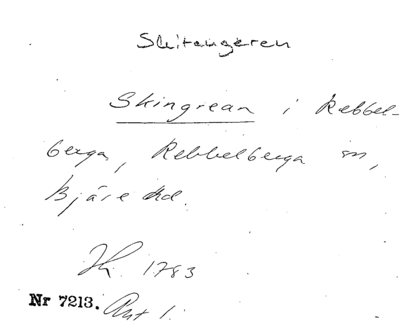 Skitangeren
Skingrean i Rebbel-
berga, Rebbelberga sn,
Bjäre hd.
1783
Nr 7213. Akt 1.